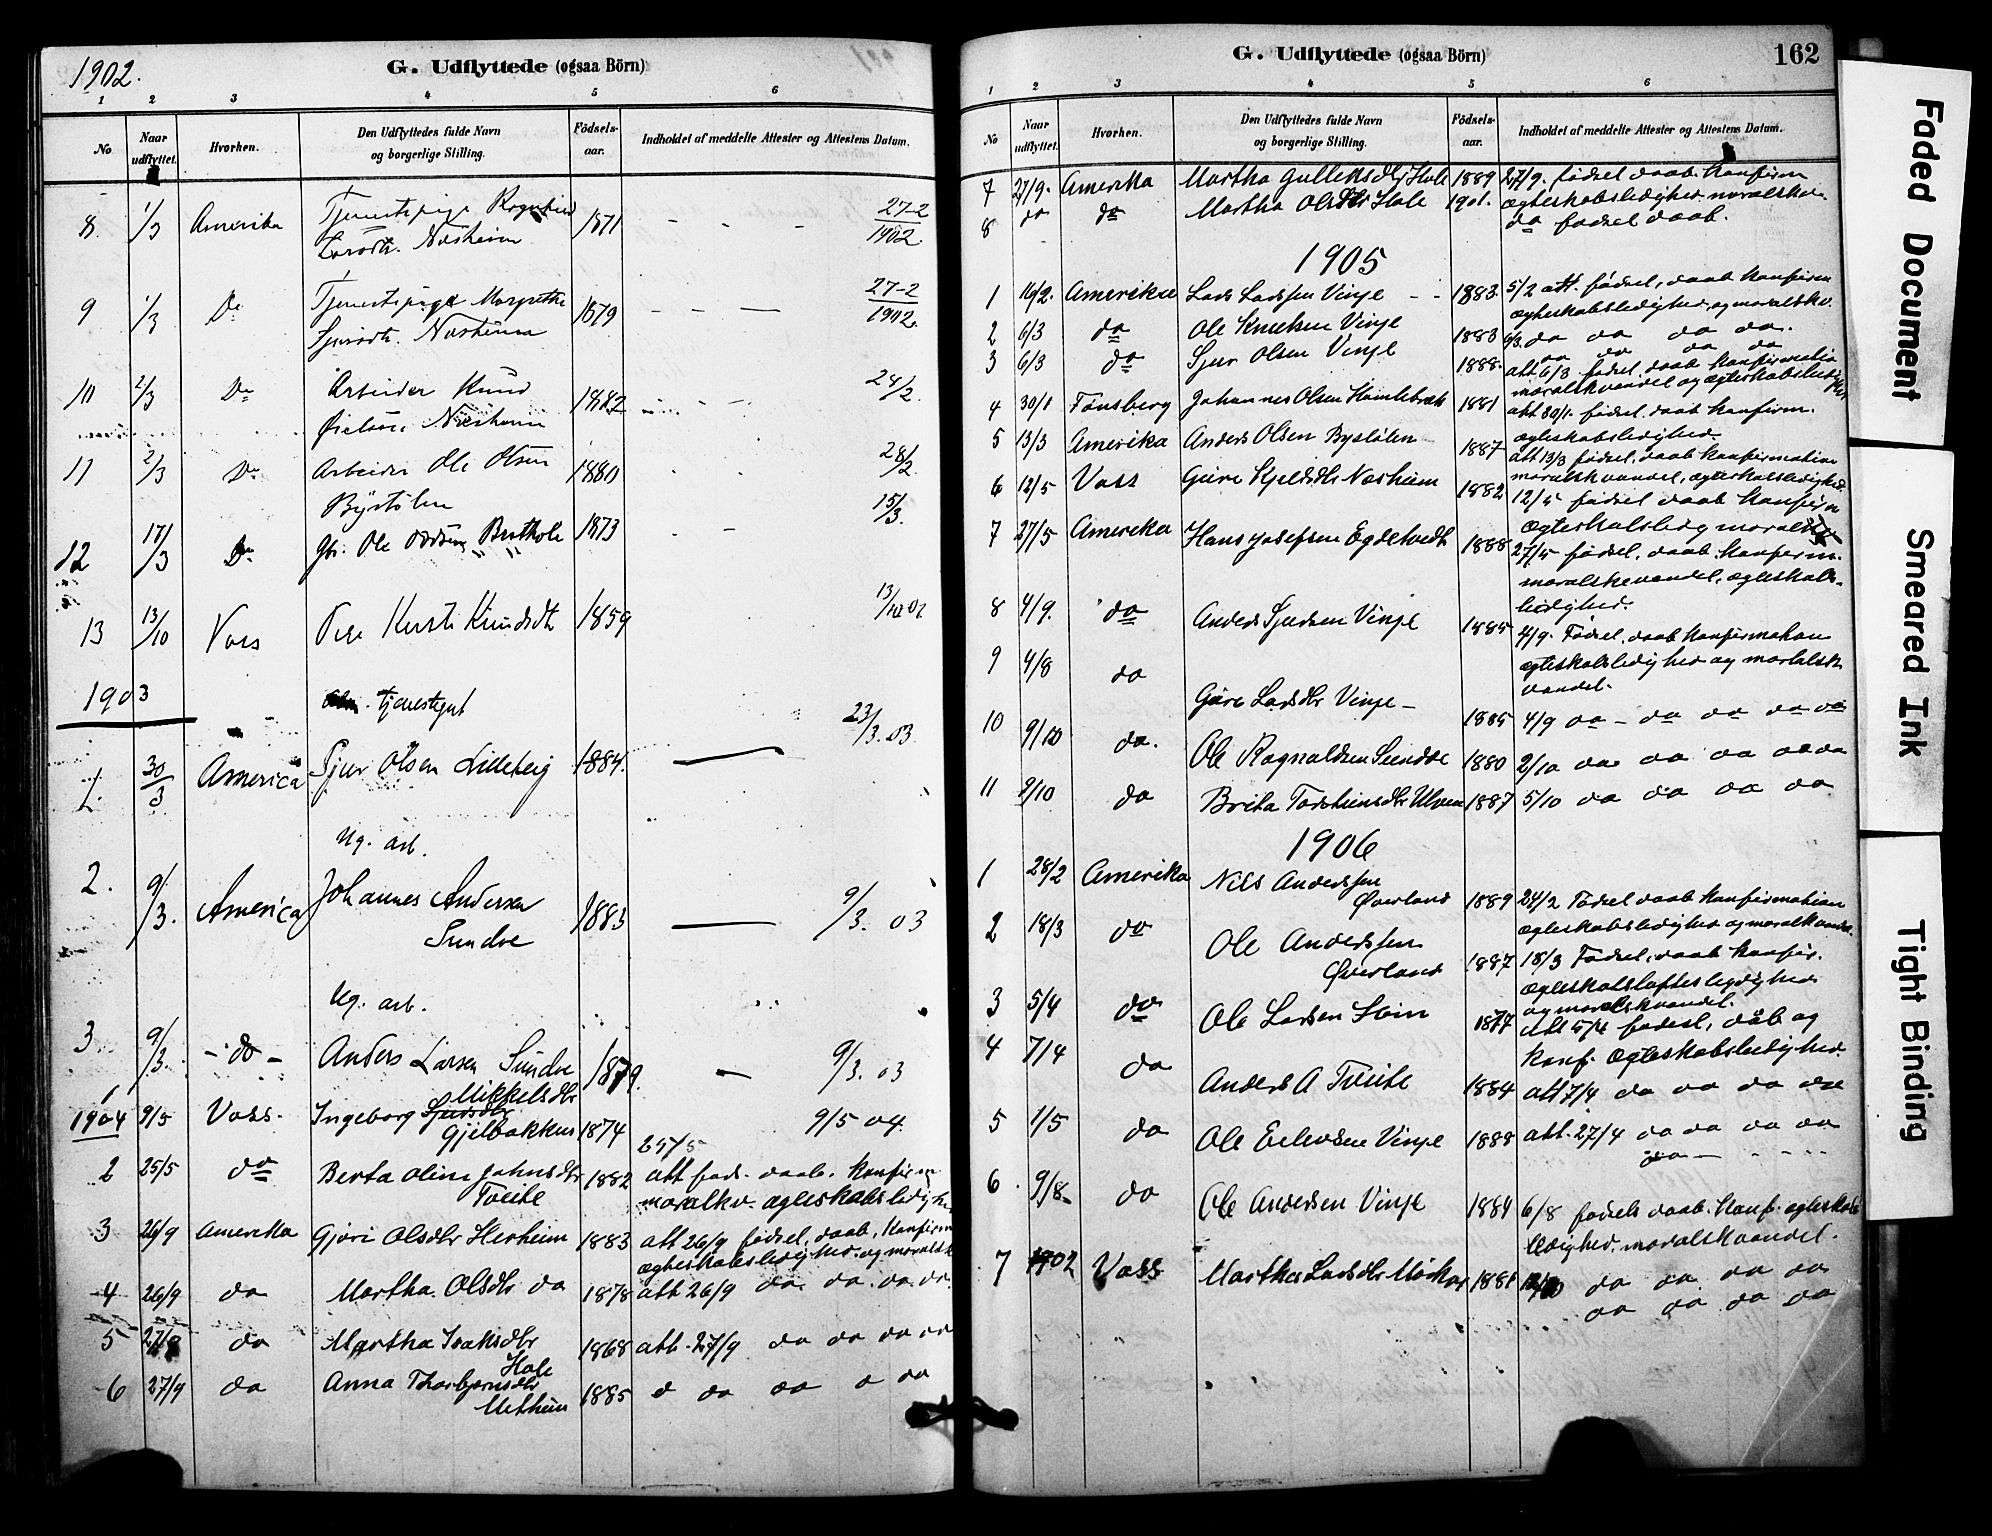 1902.
G. Udflyttede (ogsaa Börn)
1 2 3 4 5 6
No
Naar udflyttet.
Hvorhen.
Den Udflyttedes fulde Navn og borgerlige Stilling.
Födsels-aar.
Indholdet af meddelte Attester og Attestens Datum.
8 1/3 Amerika Tjenestepige 1871 - - 27-2
Næsheim 1902
9 1/3 Do Tjenestepige Margrethe 1879 - - 27-2
Sjursdtr. Næsheim 1902.
10 2/3 Do Arbeider Knud 1882 28/2
Næsheim
11 2/3 Do Arbeider Ole Olsen 1880 28/2
Bystølen
12 17/3 Do Ole 1873 - 15/3.
13 13/10 Voss Kersti Knudsdtr 1859 13/10 02
1903
tjenestegut
1. 30/3 America Sjur Olsen Lilleteig 1884. — 23/3. 03
Ug. arb.
2. 9/3. America Johannes Andersen 1883 — 9/3. 03
Sundve
Ug. arb.
3 9/3. - do - Anders Larsen Sundve 1879. — 9/3. 03
1
Mikkelsdtr
1904 9/5 Voss. Ingeborg Sjursdtr 1874 9/5 04.
Gjelbakken
25/5
2 25/5 do Berta Olina Johnsdtr 1882 att føds. daab. Konfirm
Tveite moralkv. ægteskabsledighe
3 26/9 Amerika Gjøri Olsdtr Herheim 1883 att 26/9 fødsel, daab, Konfirm
ægteskabsledighed og moralsk
4 26/9 do Martha Olsdtr do 1878 att 26/9 do do do do
5 27/9 do Martha Isaksdtr 1868 att. 27/9 do do do do
Hole
6 27/9 do Anna Thorbjørnsdtr 1885 do do do
162
G. Udflyttede (ogsaa Börn)
1 2 3 4 5 6
No
Naar udflyttet.
Hvorhen.
Den Udflyttedes fulde Navn og borgerlige Stilling.
Födsels-aar.
Indholdet af meddelte Attester og Attestens Datum.
7 27/9. Amerika Martha Gulleksdtr Hole 1889 27/9. fødsel daab. Konfirm
8 do do Martha Olsdtr Hole 1901. ægteskabsledighed moralskv.
do fødsel daab.
1905
1 Amerika Lars Larssen Vinje - - 1883. 5/2 att. fødsel, daab Konfirm
ægteskabsledighed, og moralskv.
2 6/3 do Ole Knutsen Vinje 1883 6/3. do do do do.
3 6/3 do Sjur Olsen Vinje 1888. do do do do
att 6/3 fødsel, daab Konfirmatio
moralskvandel og ægteskabsledighed
4 30/1 Tønsberg Johannes Olsen Hamlebræk 1881 att 30/1. fødsel, daab Konfirm.
ægteskabsledighed.
5 13/3 Amerika Anders Olsen Bystølen 1887 att 13/3 fødsel, daab Konfirmation
moralskvandel, ægteskabsledighed
6 12/5 Voss Guro Kjelsdtr Næsheim 1882 12/5 fødsel daab Konfirm
ægteskabsledig
7 27/5 Amerika Hans Josefsen Egdetvedt 1888 27/5 fødsel, daab Konfirm.
moralskvandel, ægteskabs-
ledighed.
8 4/9. do Anders Sjursen Vinje 1885 4/9. Fødsel, daab Konfirmation
ægteskabsledighed og moralsk
vandel.
9 4/8 do
Gjøre Larsdtr Vinje - 1885 4/9 do - do do do do
10 9/10 do. Ole Ragnaldsen Sundve 1880 2/10 do do do do do
11 9/10 do Brita Torsteinsdtr Ulven 1887 5/10 do do do do
1906
1 28/2 Amerika Nils Anderssen
Øverland 1889 24/2 Fødsel daab Konfirmation
ægteskabsledighed og moralskvandel.
2 18/3 do Ole Anderssen
Øverland 1887 18/3 Fødsel, daab Konfir.
ægteskabsløftesledighed
og moralskvandel.
3 5/4 do Ole Larsen 1877 att 5/4 fødsel, dåb og
konf. ægteskabsledighed.
4 7/4 do Anders A Tveite 1884 att 7/4 do do do do
5 1/5 do Ole Vinje 1888 att. 27/4 do do do do
do —
6 9/8 do Ole Andersen Vinje 1884 6/8 fødsels daab. Konf. ægteskabs
ledighed, moralskvandel.
7 1902 Voss Martha Larsdtr 1881 do do do do
do do do do
Faded Document
Smeared Ink
Tight Binding